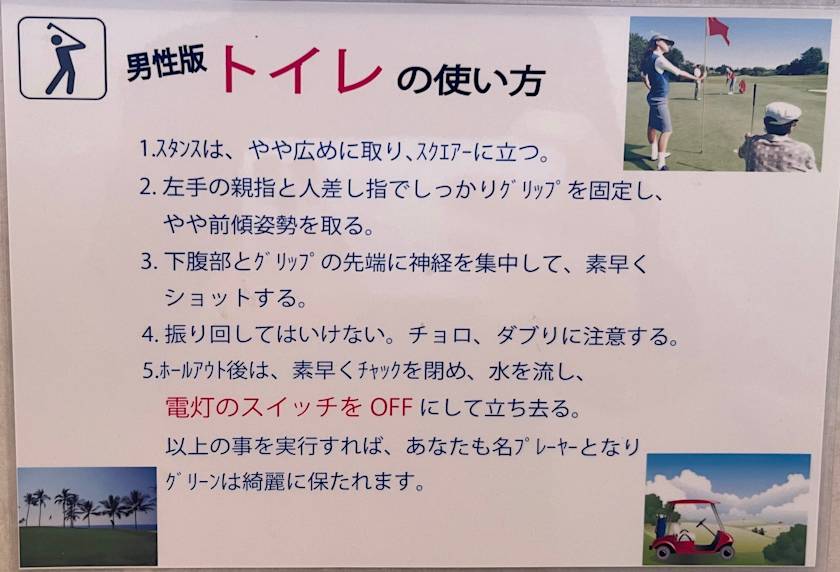 男性版 トイレ の使い方
1.ｽﾀﾝｽは、やや広めに取り､ｽｸｴｱｰに立つ。
2. 左手の親指と人差し指でしっかりｸﾞﾘｯﾌﾟを固定し、
やや前傾姿勢を取る。
3. 下腹部とｸﾞﾘｯﾌﾟの先端に神経を集中して、素早く
ショットする。
4. 振り回してはいけない。チョロ、ダブりに注意する。
5.ﾎｰﾙｱｳﾄ後は、素早くﾁｬｯｸを閉め、水を流し、
電灯のスイッチを OFF にして立ち去る。
以上の事を実行すれば、あなたも名ﾌﾟﾚｰﾔｰとなり
ｸﾞﾘｰﾝは綺麗に保たれます。